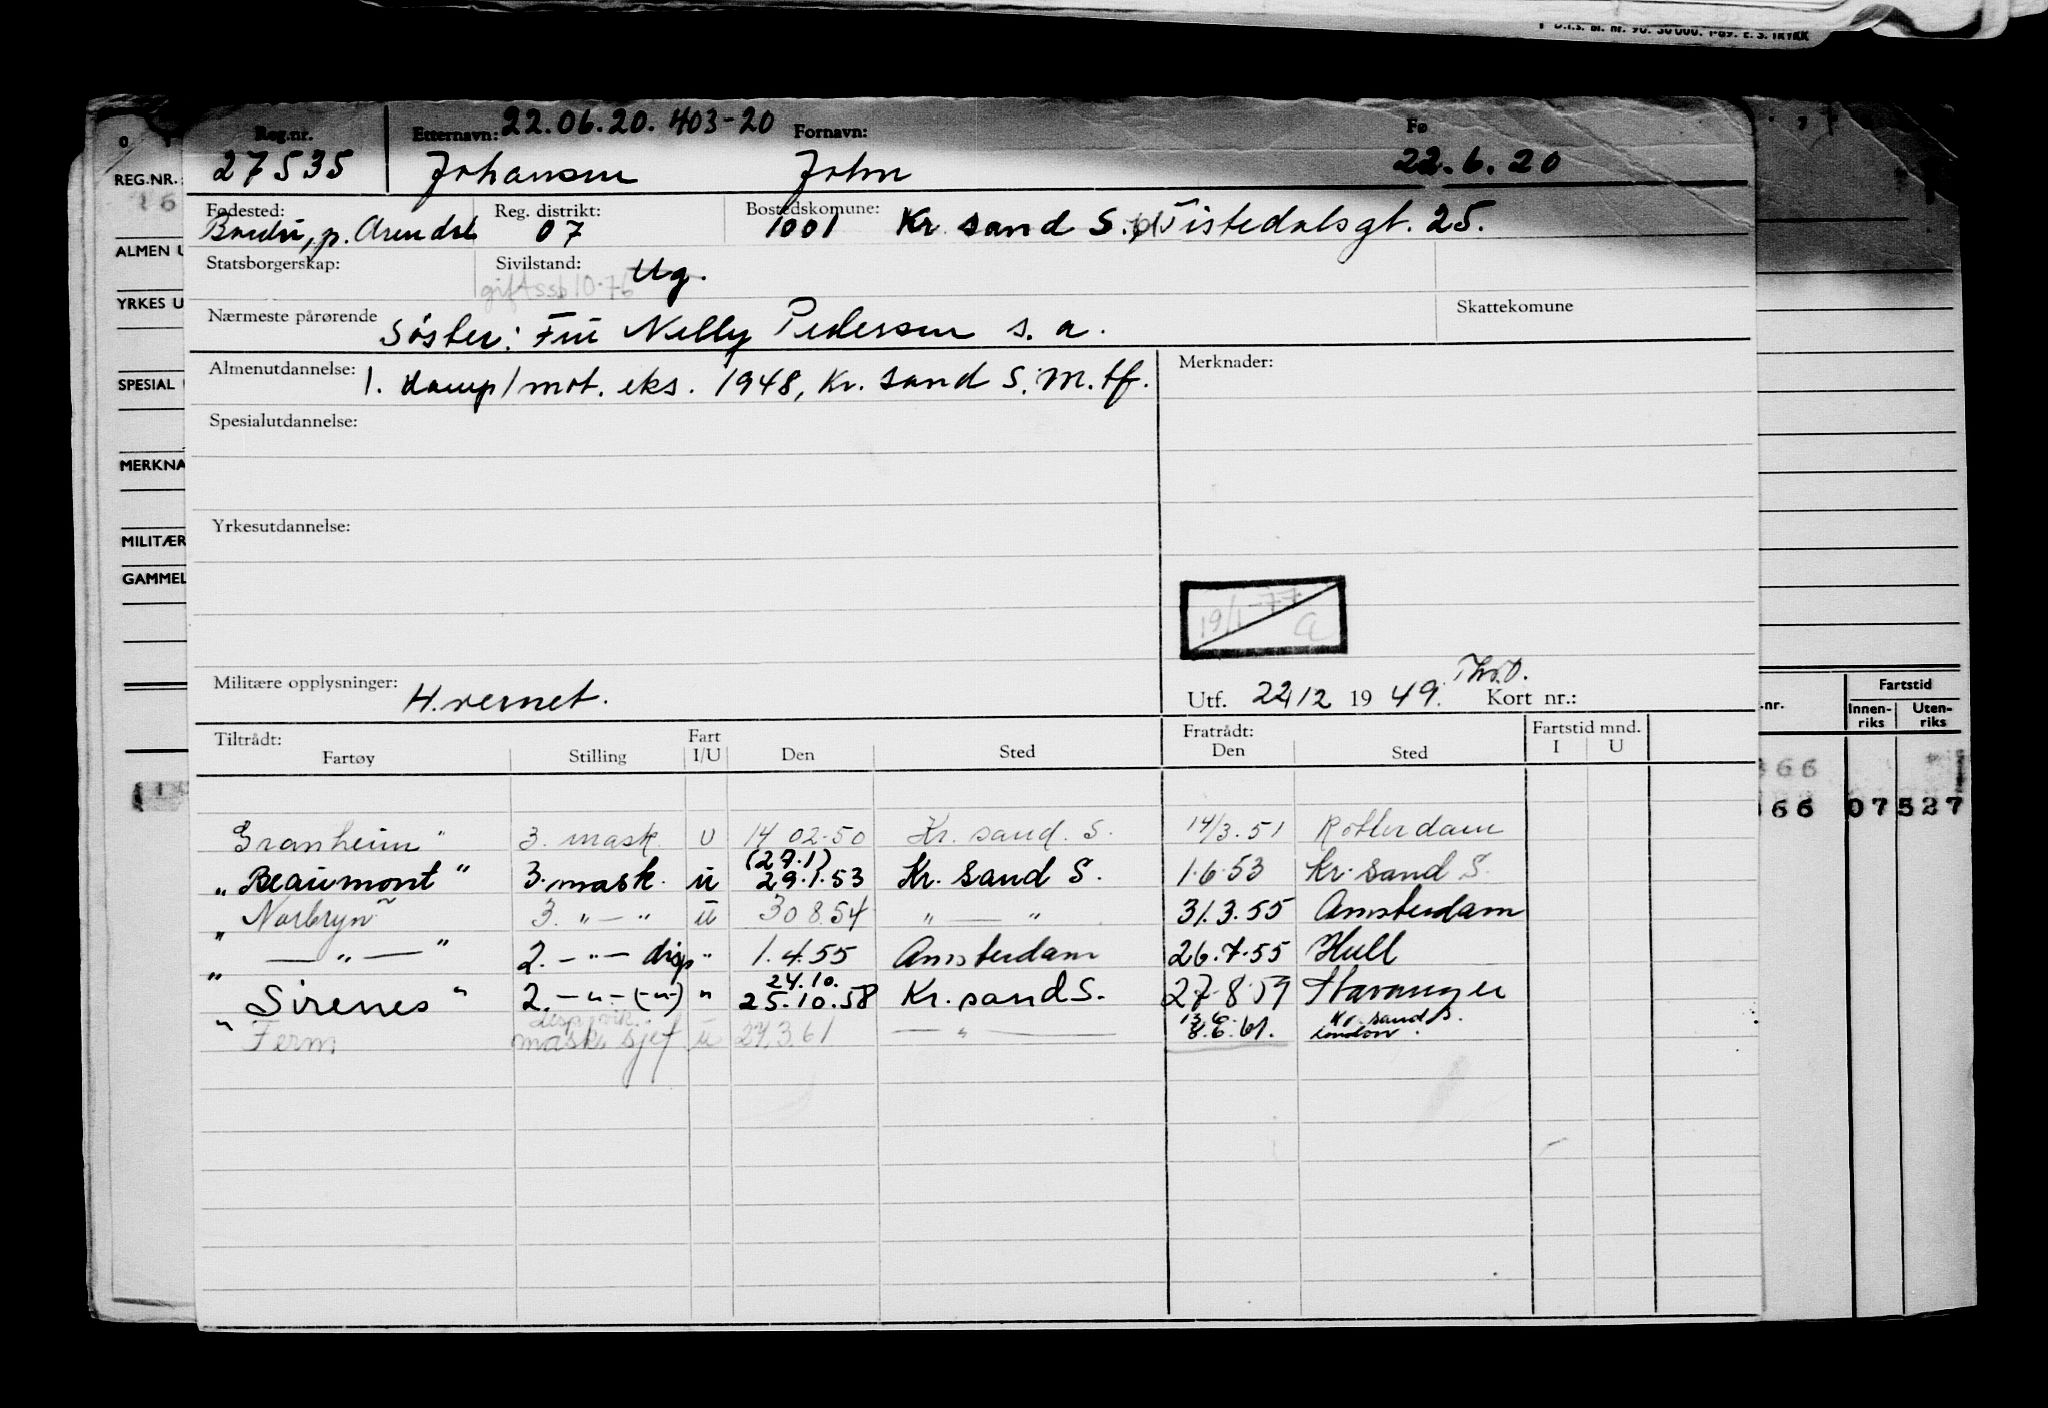 D.I.S. bl. nr. 90. 50 000. 1-69. E. S. TRYKK
Reg.nr. Etternavn: 22.06.20. 403-20 Fornavn: Fø
27535 Johansen John 22.6.20
REG.NR.:
Fødested: Reg. distrikt: Bostedskomune:
p. Arendal 07 1001 Kr. sand S. Tistedalsgt. 25.
ALMEN U
Statsborgerskap: Sivilstand: Ug.
gift ssb 10-76
YRKES U
Nærmeste pårørende Skattekomune
Søster: Fru Nelly Pedersen s. a.
Almenutdannelse: Merknader:
1. damp/mot. eks. 1948, Kr. sand S. M.tf.
SPESIAL
Spesialutdannelse:
MERKNA
Yrkesutdannelse:
MILITÆR
GAMMEL
19/1-77 a
Militære opplysninger: H.vernet.
Utf. 22/12 1949. Kort nr.:
.nr. Fartstid
Innen-riks Uten-riks
Tiltrådt: Fart Fratrådt: Fartstid mnd.
Fartøy Stilling I/U Den Sted Den Sted I U
66
66 07527
Granheim" 3. mask. U 14 02.50 Kr. sand. S. 14/3.51 Rotterdam
(27.1)
"Beaumont" 3. mask. u 29.1.53 Kr. sand S. 1.6.53 Kr. sand S.
"Norbryn" 3. "—" u 30 8.54 "—" 31.3.55 Amsterdam
"—"—" 2. -"- disp " 1.4.55 Amsterdam 26.7.55 Hull
24.10.
"Sirenes" 2. -"- (-"-) " 25.10.58 Kr. sand S. 27.8.59 Stavanger
13.6. Kr. sand S.
"Ferm mask. sjef u 27.3.61 —"— 8.6.61. London.